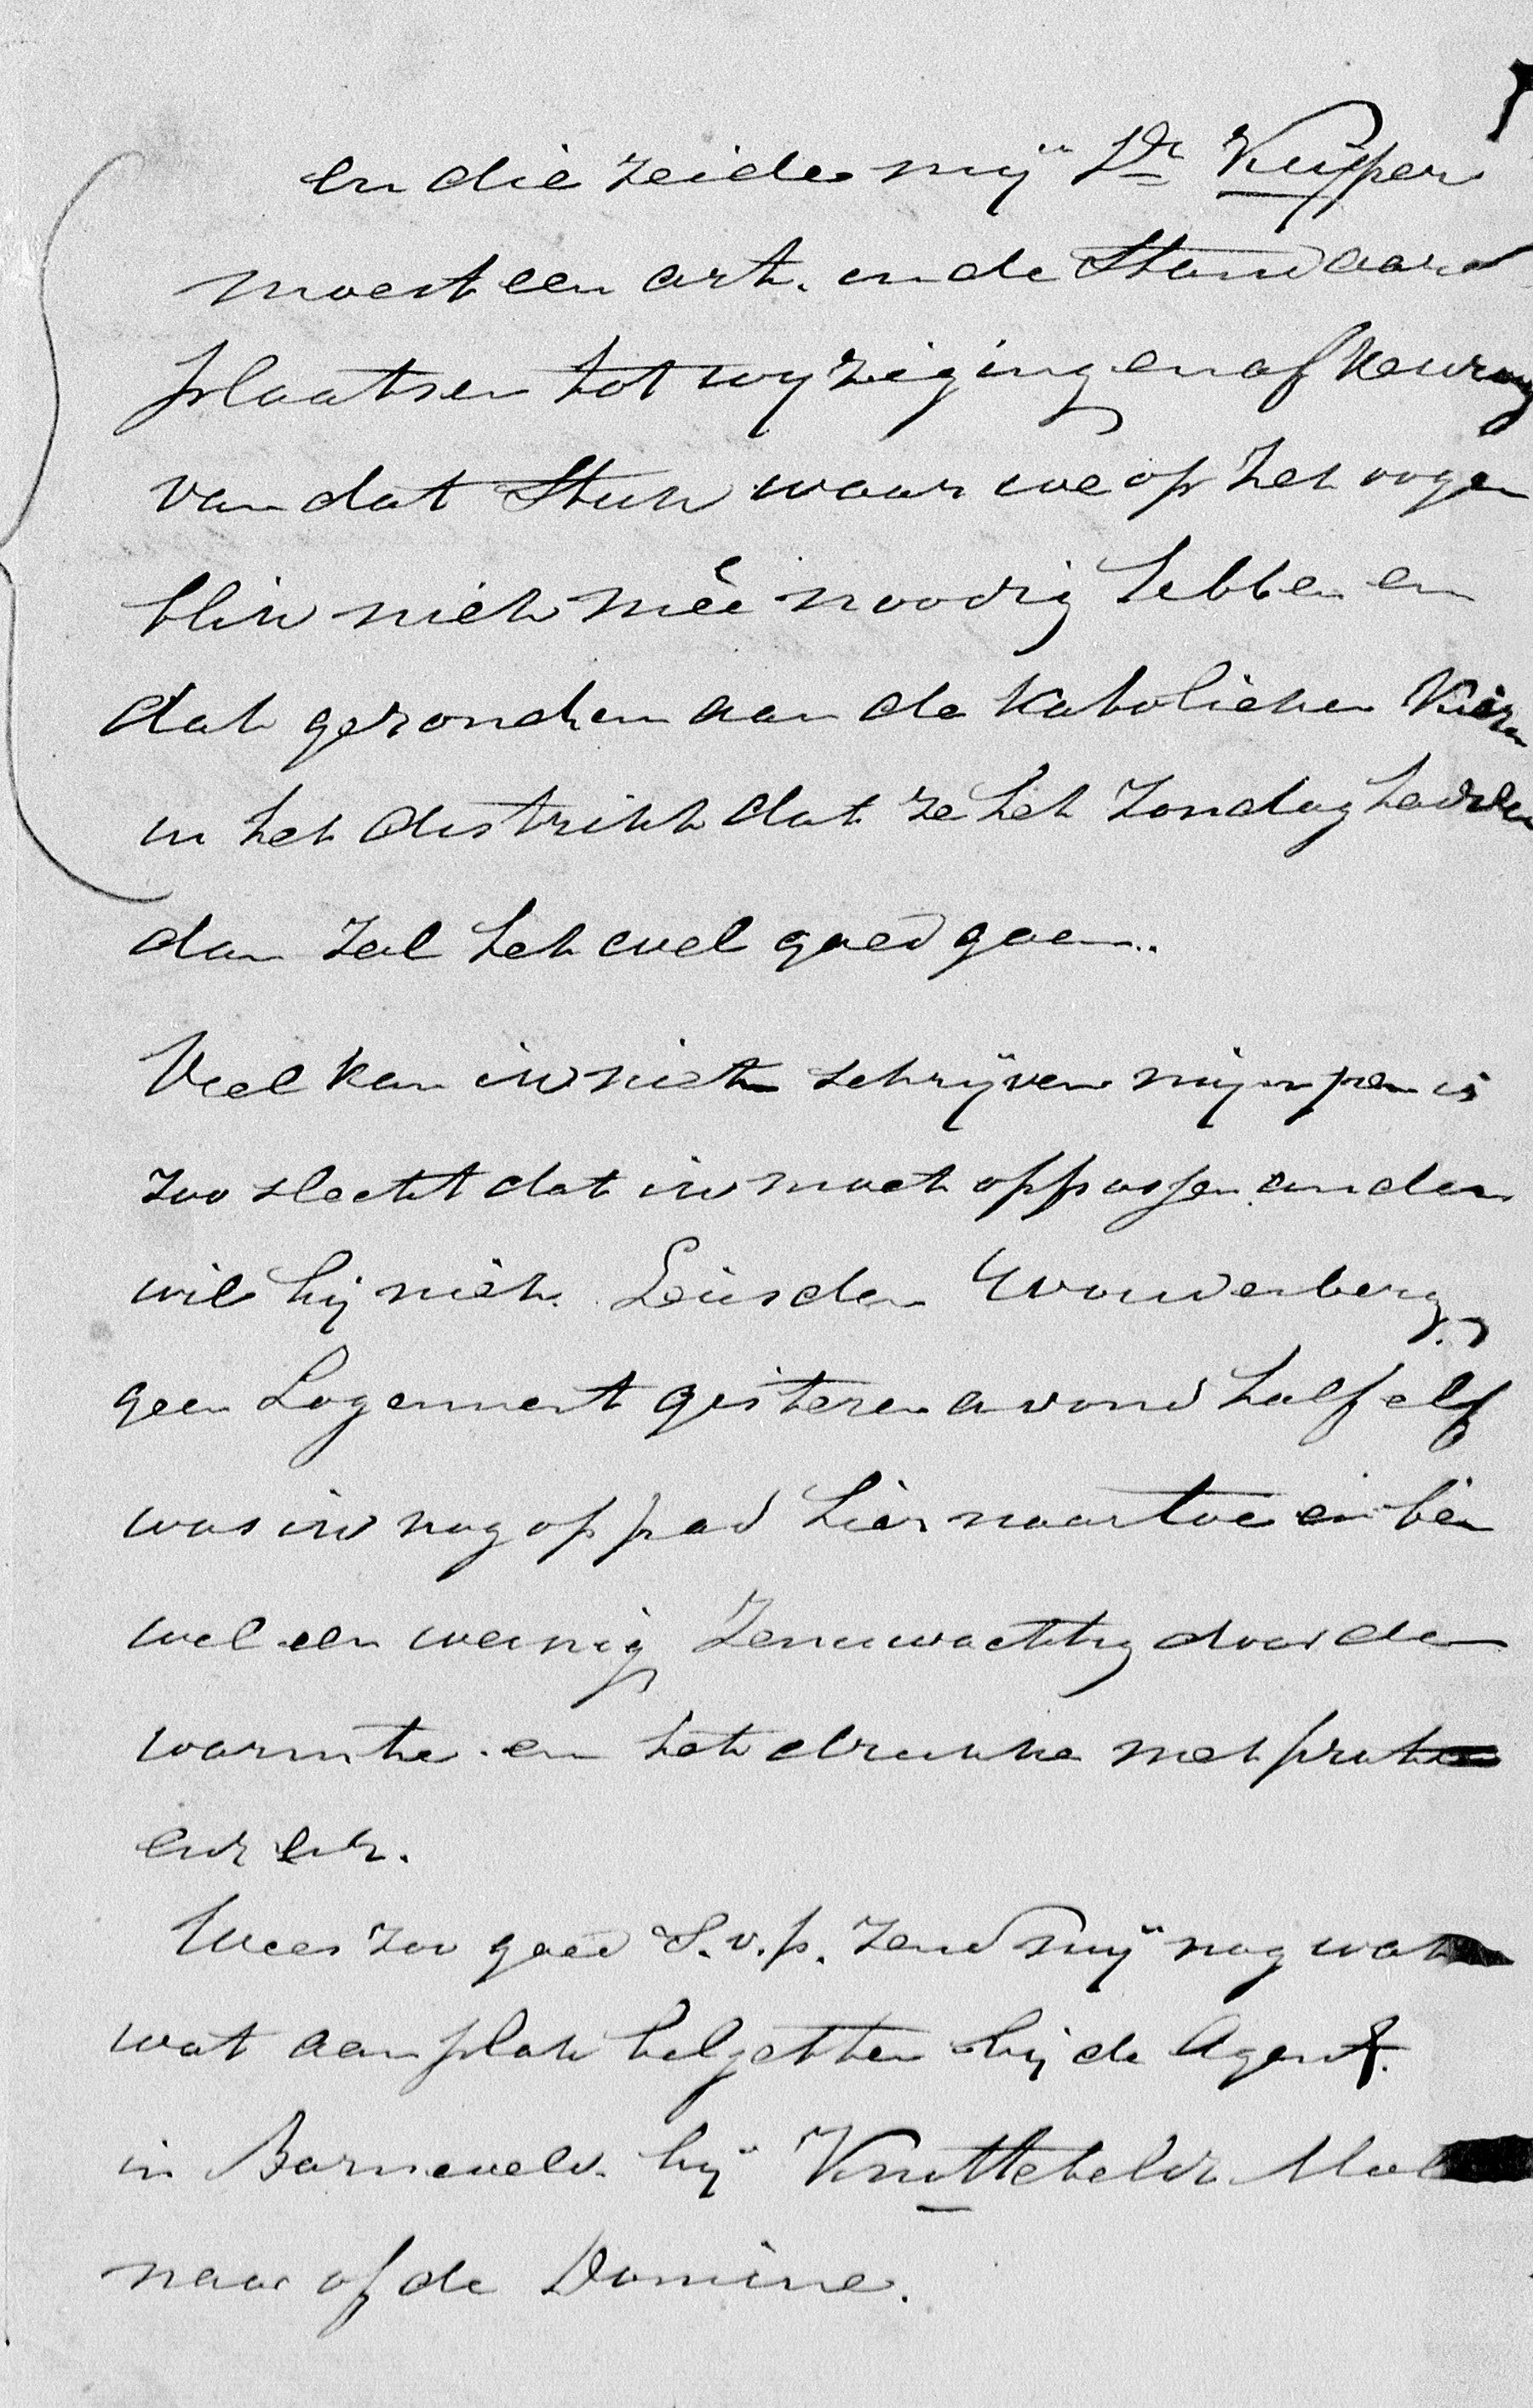 en die zeide mij Dr Kuijper
moest een art. in de Standaard
plaatsen tot wijziging en afkeuring
van dat Stuk waar we op het oogen
blik niet mêe noodig hebben en
dat gezonden aan de Katolieken Kiezers
in het distrikt dat ze het Zondag hadden
dan zal het wel goed gaan.
Veel kan ik niet schrijven mijn pen is
zoo slecht dat ik moet oppassen anders
wil hij niet. Leusden Woudenberg
geen Logement gisteren avond half elf
was ik nog op pad hier naartoe en ben
wel een weinig Zenuwachtig door de
warmte en het drukke met praten
enz enz.
Wees zoo goed S.v.p. zend mij nog wat
wat aanplak biljetten bij de Agent
in Barneveld bij Knottebeld Mole
naar of de Domine.